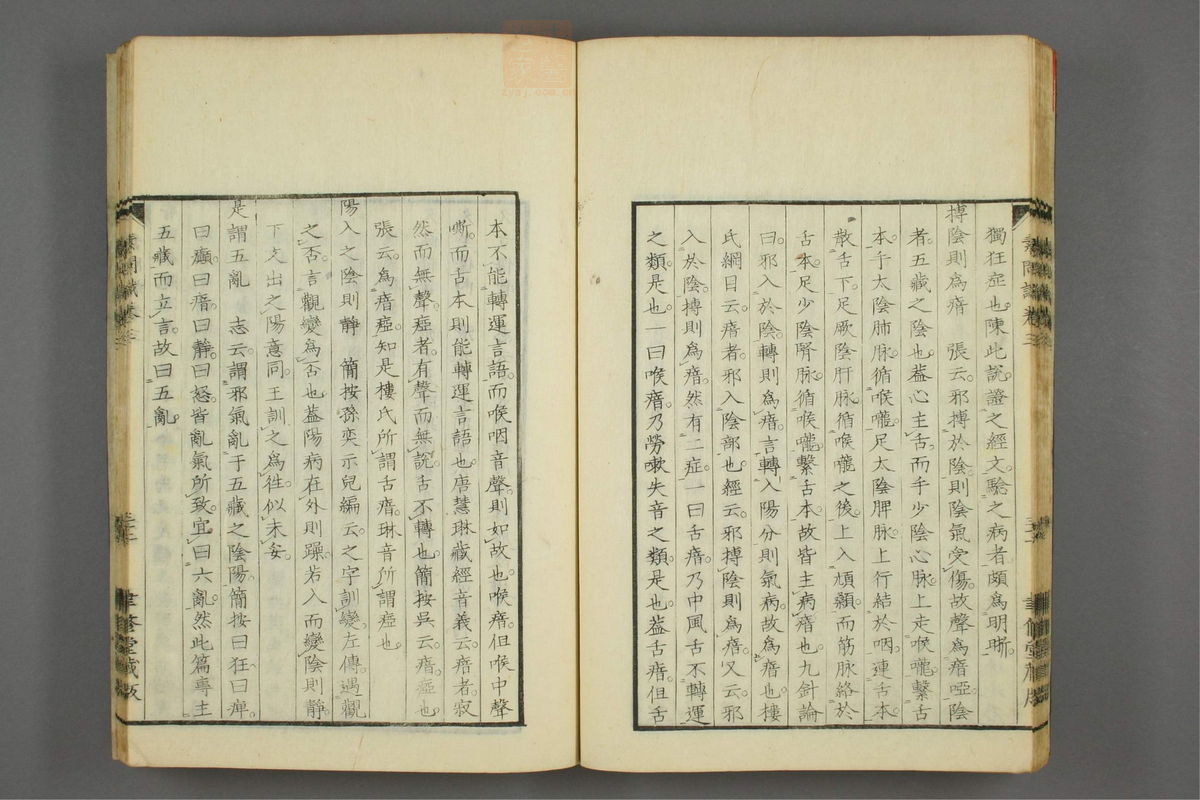 獨狂症也。陳此說。證之經文。驗之病者。頗為明晰。
搏陰則為瘖　張云。邪搏於陰。則陰氣受傷。故聲為瘖啞。陰
者。五藏之陰也。葢心主舌。而手少陰心脉。上走喉嚨。繫舌
本。手太陰肺脉。循喉嚨。足太陰脾脉。上行結於咽。連舌本。
散舌下。足厥陰肝脉。循喉嚨之後。上入頏顙。而筋脉絡於
舌本。足少陰腎脉。循喉嚨。繫舌本。故皆主病瘖也。九針論
曰。邪入於陰。轉則為瘖。言轉入陽分則氣病。故為瘖也。樓
氏綱目云。瘖者。邪入陰部也。經云。邪搏陰則為瘖。又云。邪
入於陰。搏則為瘖。然有二症。一曰舌瘖。乃中風舌不轉運
之類是也。一曰喉瘖。乃勞嗽失音之類是也。葢舌瘖。但舌
本不能轉運言語。而喉咽音聲則如故也。喉瘖。但喉中聲
嘶。而舌本則能轉運言語也。唐慧琳藏經音義云。瘖者。寂
然而無聲。瘂者。有聲而無說。舌不轉也。簡按吳云。瘖。瘂也。
張云。為瘖瘂。知是樓氏所謂舌瘖。琳音所謂瘂也
陽入之陰則靜　簡按孫奕示兒編云。之字訓變。左傳。遇觀
之否。言觀變為否也。葢陽病在外則躁。若入而變陰則靜。
下文出之陽意同。王訓之為往。似未妥。
是謂五亂　志云。謂邪氣亂于五藏之陰陽。簡按曰狂。曰痺。
曰癲。曰瘖。曰靜。曰怒。皆亂氣所致。宜曰六亂。然此篇專主
五藏而立言。故曰五亂。
聿修堂藏版